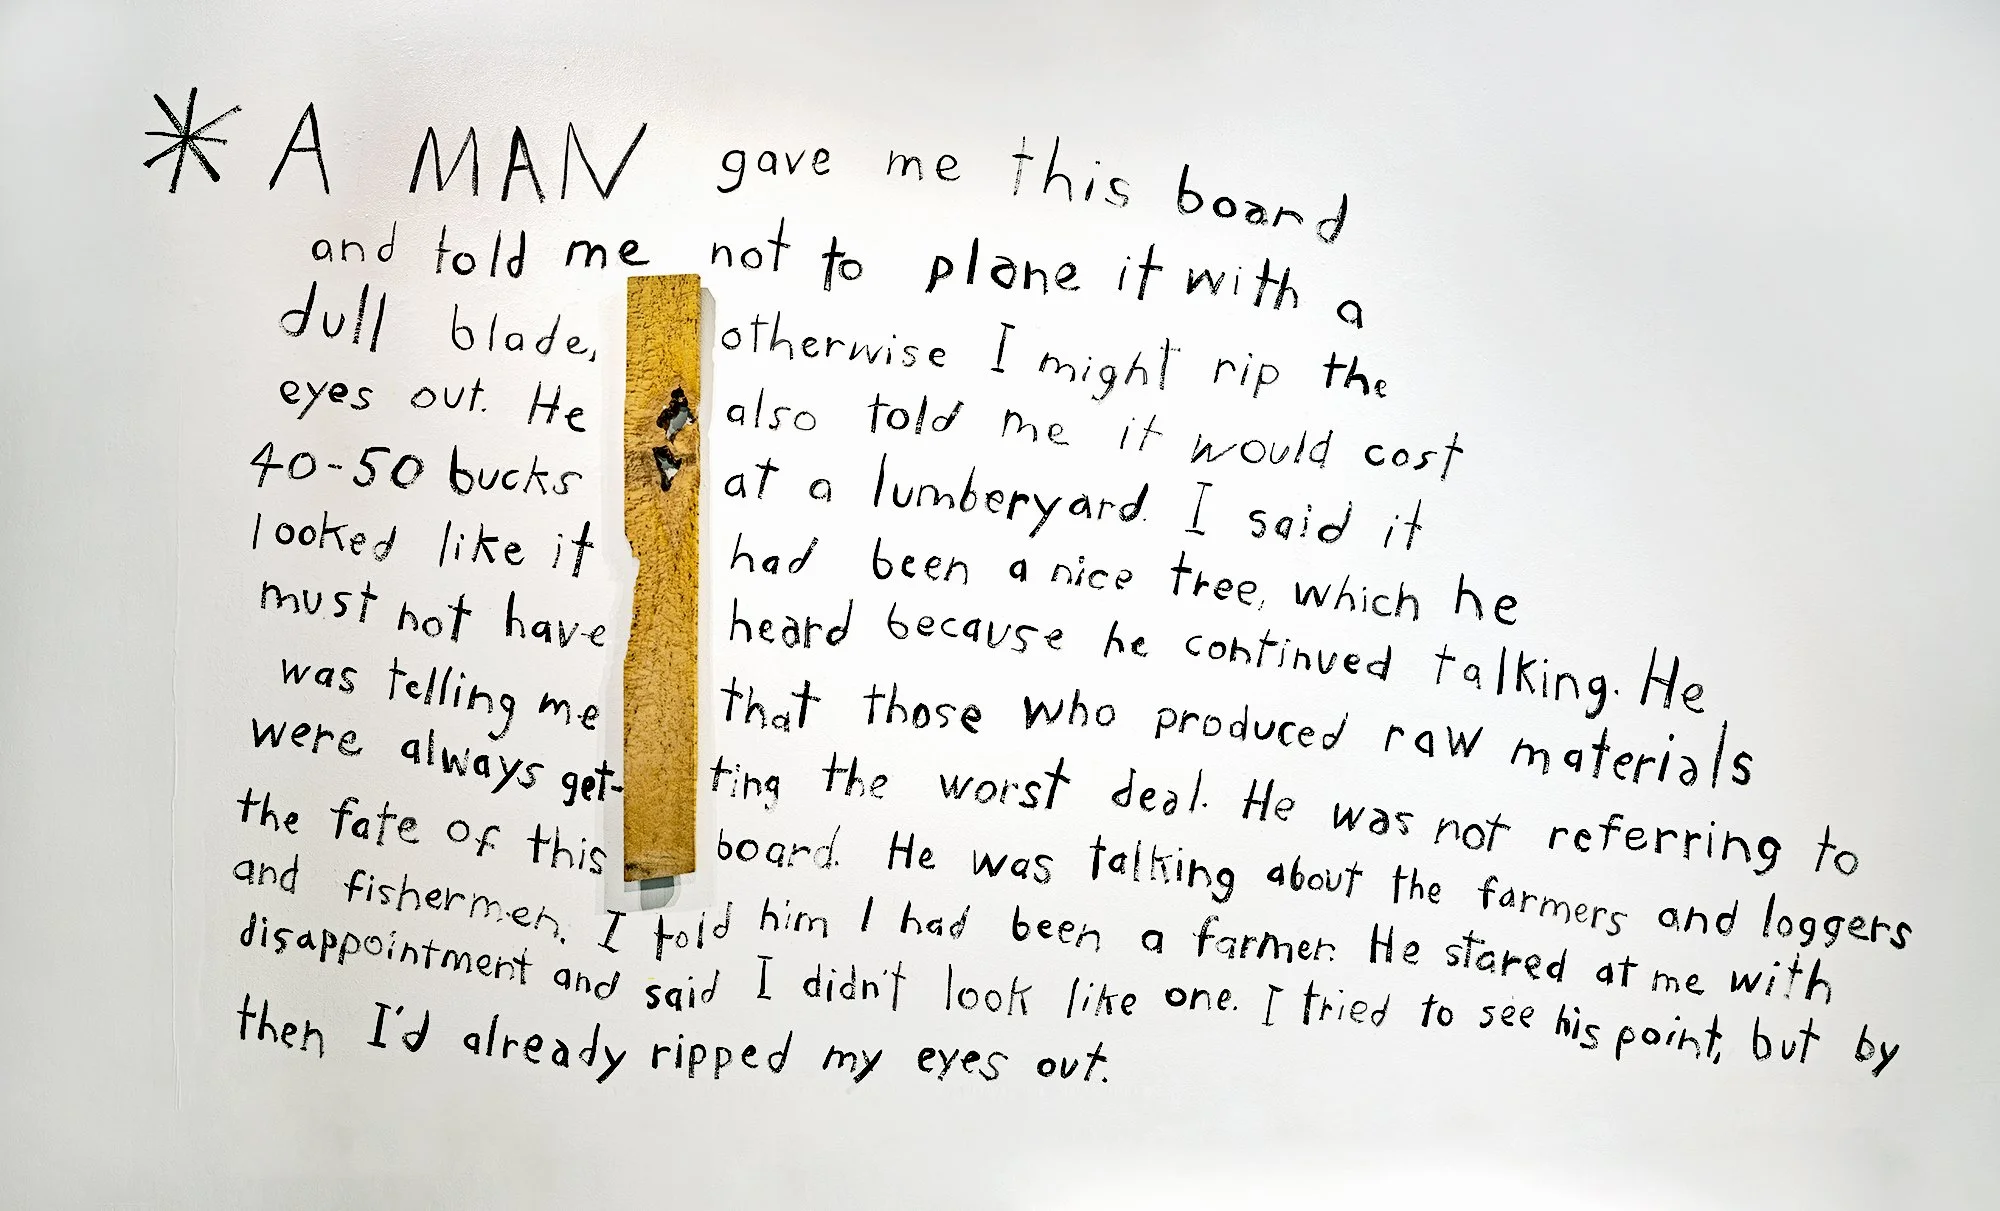 * A MAN gave me this board
and told me not to plane it with a
dull blade, otherwise I might rip the
eyes out. He also told me it would cost
40-50 bucks at a lumberyard. I said it
looked like it had been a nice tree, which he
must not have heard because he continued talking. He
was telling me that those who produced raw materials
were always get-ting the worst deal. He was not referring to
the fate of this board. He was talking about the farmers and loggers
and fishermen. I told him I had been a farmer. He stared at me with
disappointment and said I didn't look like one. I tried to see his point, but by
then I'd already ripped my eyes out.